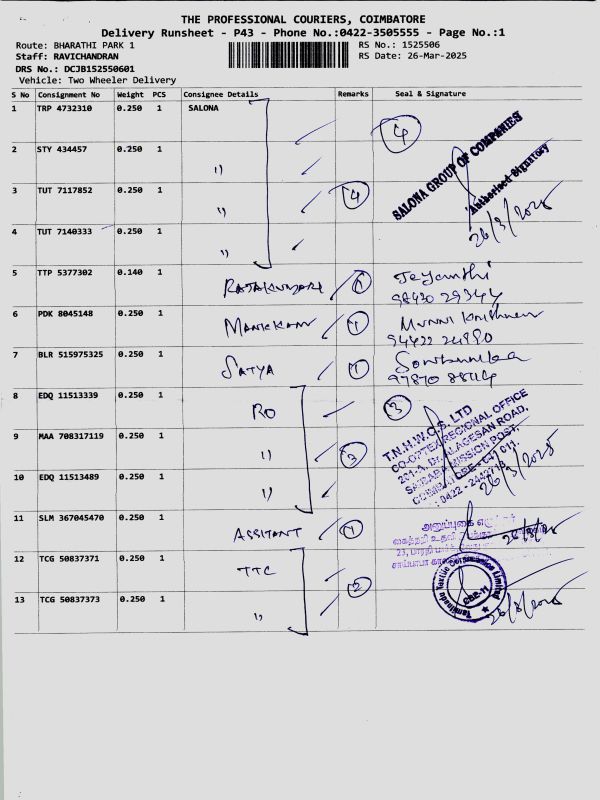 THE PROFESSIONAL COURIERS, COIMBATORE
Delivery Runsheet - P43 - Phone No.:0422-3505555 - Page No.:1
Route: BHARATHI PARK 1 RS No.: 1525506
Staff: RAVICHANDRAN RS Date: 26-Mar-2025
DRS No.: DCJB152550601
Vehicle: Two Wheeler Delivery
S No Consignment No Weight PCS Consignee Details Remarks Seal & Signature
1 TRP 4732310 0.250 1 SALONA 4
SALONA GROUP OF COMPANIES
Authorised Signatory
26/3/2025
2 STY 434457 0.250 1 "
3 TUT 7117852 0.250 1 " 4
4 TUT 7140333 0.250 1 "
5 TTP 5377302 0.140 1 RAJAKUMARI 1 Jeyanthi
98430 29344
6 PDK 8045148 0.250 1 MANICKAM 1
7 BLR 515975325 0.250 1 SATYA 1
8 EDQ 11513339 0.250 1 RO 3
T.N.H.W.C.S. LTD
CO-OPTEX REGIONAL OFFICE
201-A, Dr. ALAGESAN ROAD,
SAIBABA MISSION POST,
COIMBATORE - 641 011.
26/3/2025
9 MAA 708317119 0.250 1 " 3
10 EDQ 11513489 0.250 1 "
11 SLM 367045470 0.250 1 ASSITANT 1
26/3/25
12 TCG 50837371 0.250 1 TTC 2
Tamilnadu Textile Corporation Limited
CBE-11
13 TCG 50837373 0.250 1 "
26/3/2025